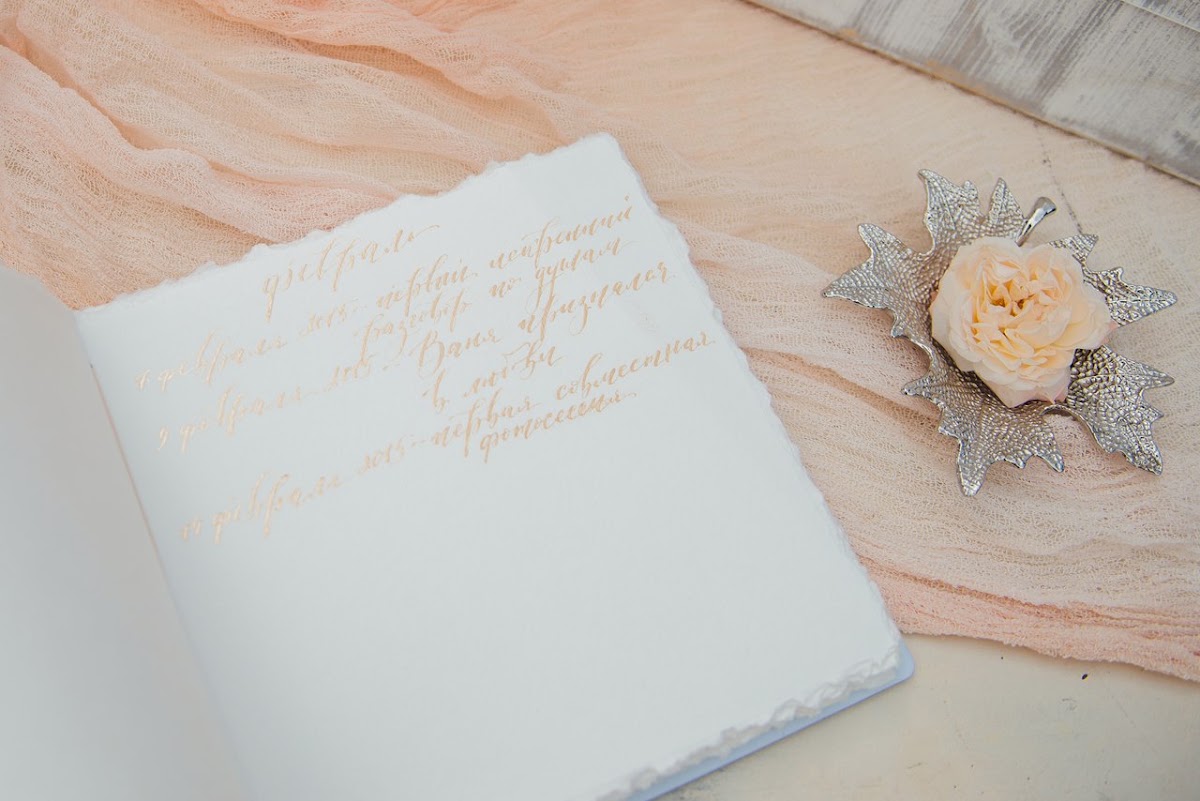 февраль
февраля 2015 - первый искренний
разговор по душам
9 февраля 2015 - Ваня признался
в любви
14 февраля 2015 - первая совместная
фотосессия